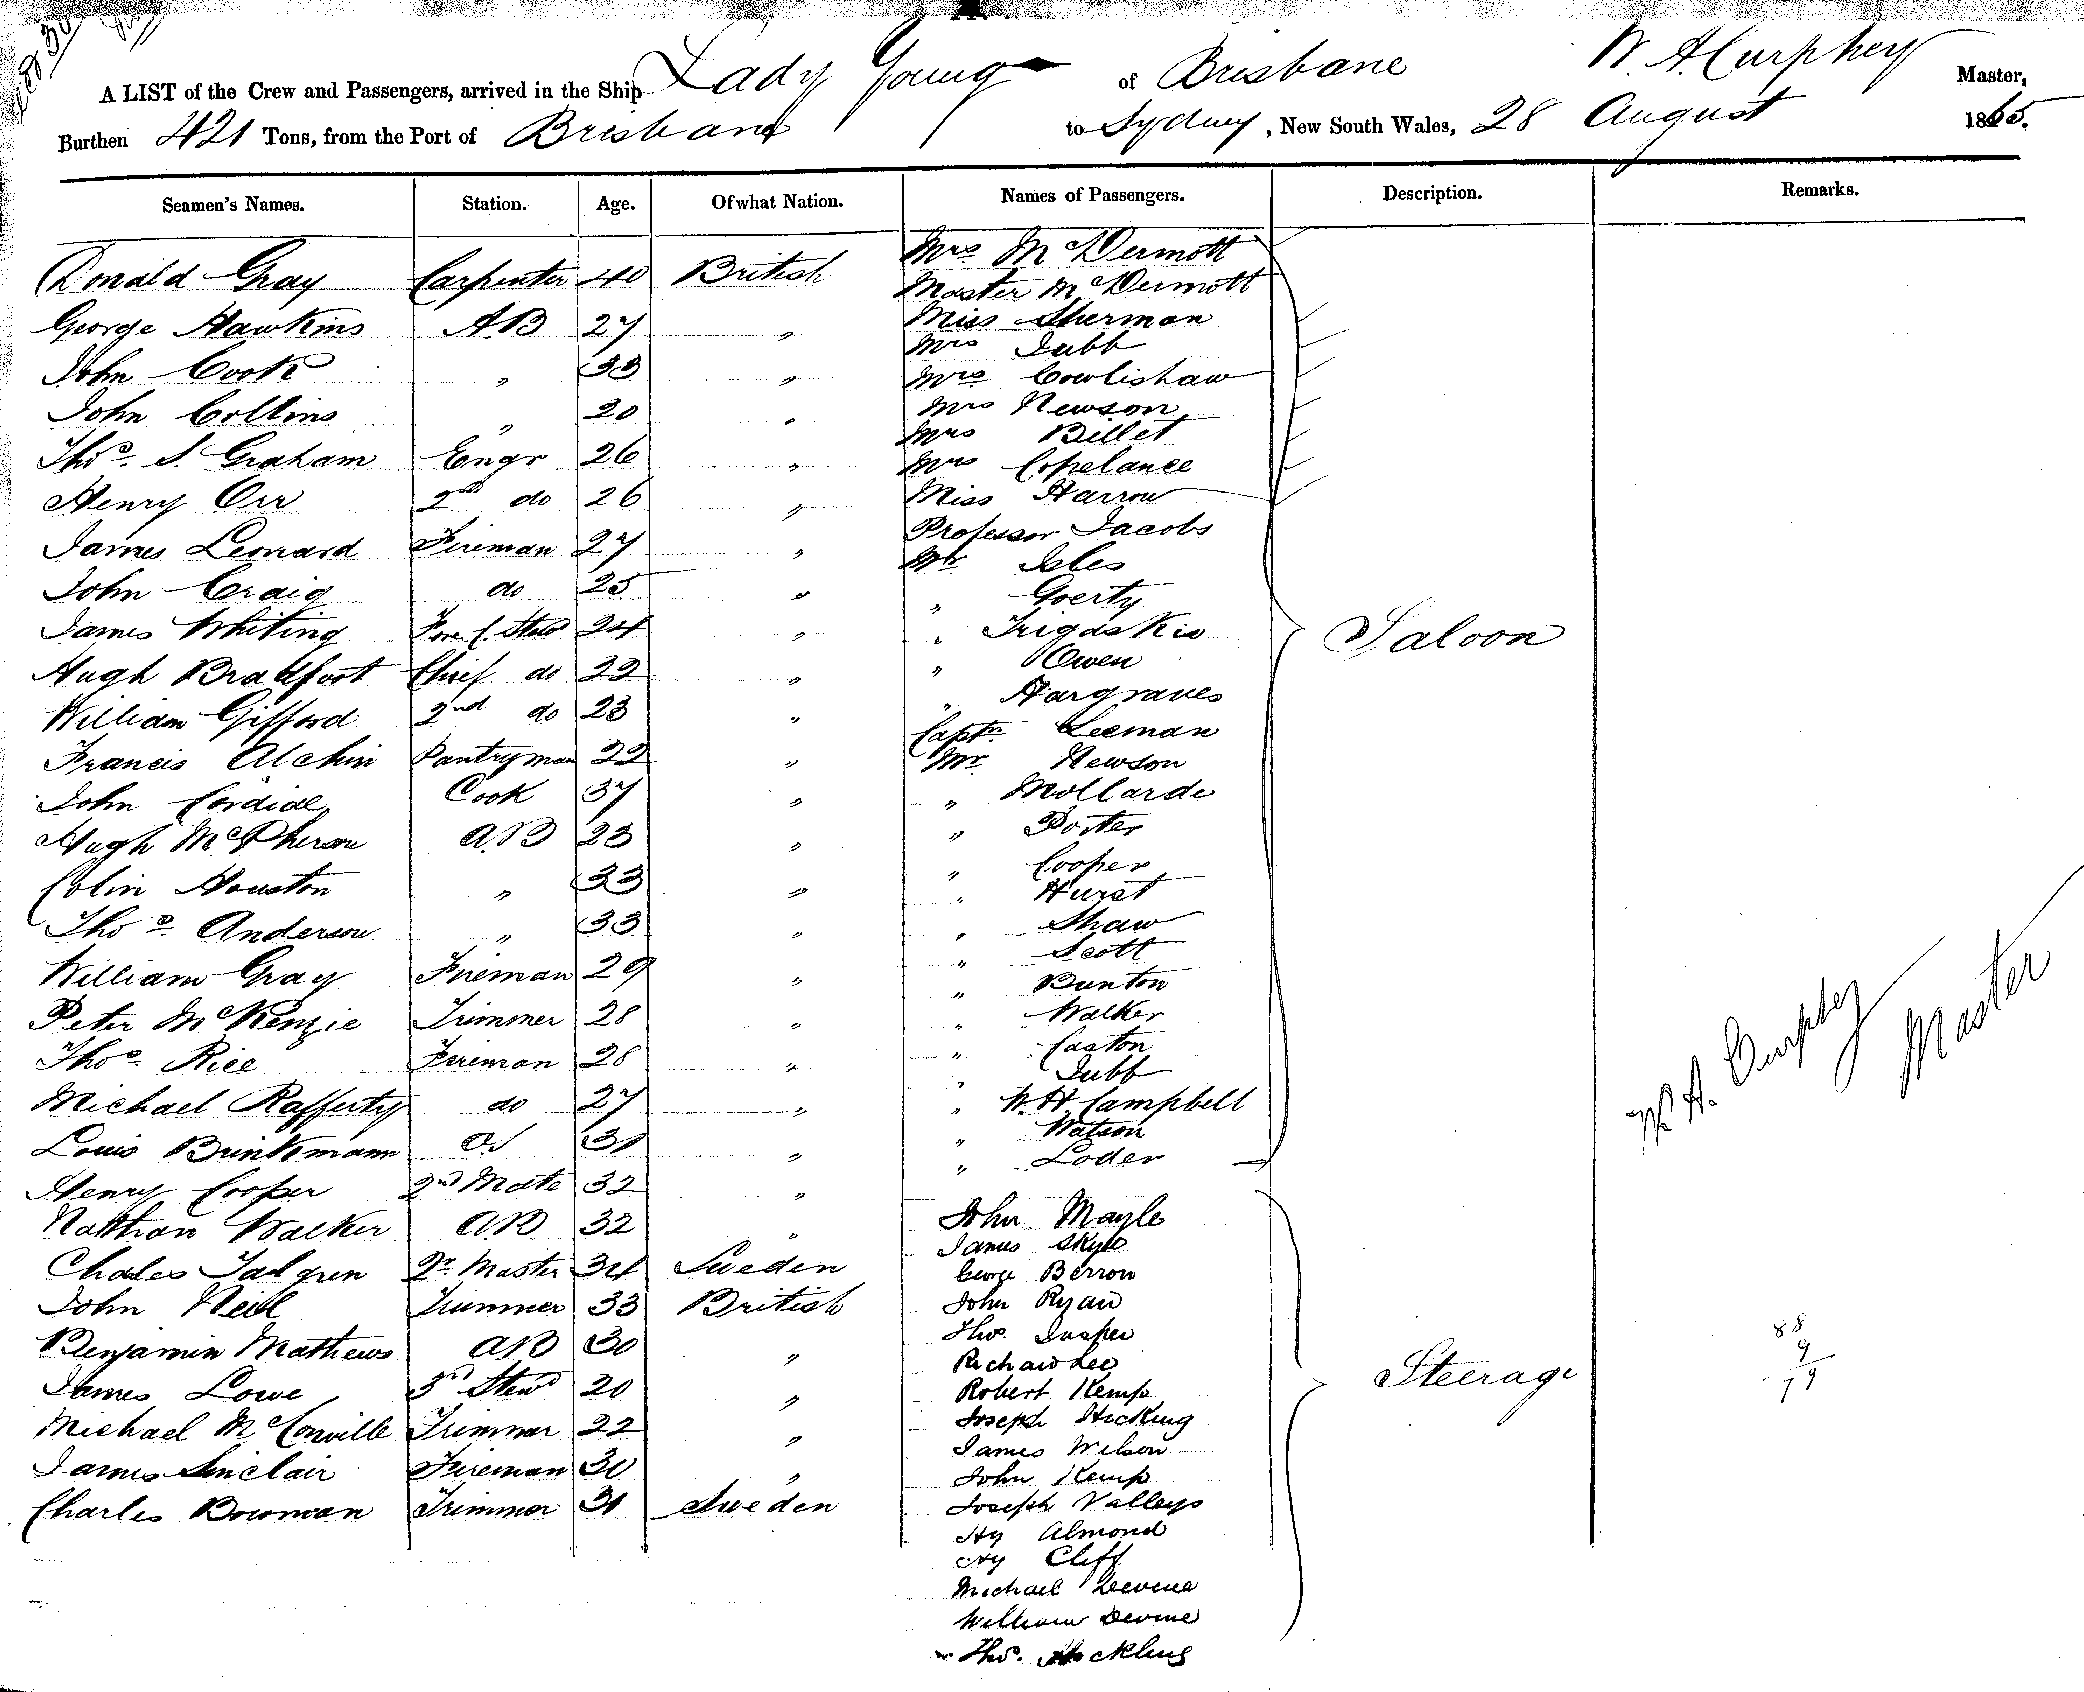 A LIST of the Crew and Passengers, arrived in the Ship Lady Young of Brisbane W. A. Curphey Master,
Burthen 421 Tons, from the Port of Brisbane to Sydney, New South Wales, 28 August 1865.
Seamen's Names. Station. Age. Of what Nation. Names of Passengers. Description. Remarks.
Donald Gray Carpenter 40 British
George Hawkins A.B 27 "
John Cook " 33 "
John Collins " 20 "
Thos. S. Graham Engr 26 "
Henry Orr 2nd do 26 "
James Leonard Fireman 27 "
John Craig do 25 "
James Whiting Fore C. Stewd 24 "
Hugh Bradfoot Chief do 22 "
William Gifford 2nd do 23 "
Francis Alchin Pantryman 22 "
John Cordial Cook 37 "
Hugh McPherson A.B 23 "
Colin Houston " 33 "
Thos Anderson " 33 "
William Gray Fireman 29 "
Peter McKenzie Trimmer 28 "
Thos. Rice Fireman 28 "
Michael Rafferty do 27 "
Louis Brinkmann 31 "
Henry Cooper 2nd Mate 32 "
Nathan Walker AB 32 "
Chales Talgren Qr. Master 34 Sweden
John Neil Trimmer 33 British
Benjamin Mathews AB 30 "
James Lowe 3rd Stewd 20 "
Michael McConville Trimmer 22 "
James Sinclair Fireman 30 "
Charles Bowman Trimmer 31 Sweden
Mrs McDermott
Master McDermott
Miss Sherman
Mrs Jubb
Mrs Cowlishaw
Mrs Newson
Mrs Billet
Mrs Copelance
Miss Harrow
Professor Jacobs
Mr Isles
" Goerty
"
" Owen
" Hargraves
Captn. Leeman
Mr. Newson
" Mollarde
" Porter
" Cooper
" Hurst
" Shaw
" Scott
" Bunton
" Walker
" Caston
" Jubb
" W. H. Campbell
" Watson
" Loder
Saloon
John Mayle
James Skyle
George Berrow
John Ryan
Thos. Jasper
Richard Lee
Robert Kemp
Joseph Hicking
James Wilson
John Kemp
Joseph Valleys
Hy Almond
Hy Cliff
Michael Devine
William Devine
Thos. Hockling
Steerage
W. A. Curphey
Master
88
9
79